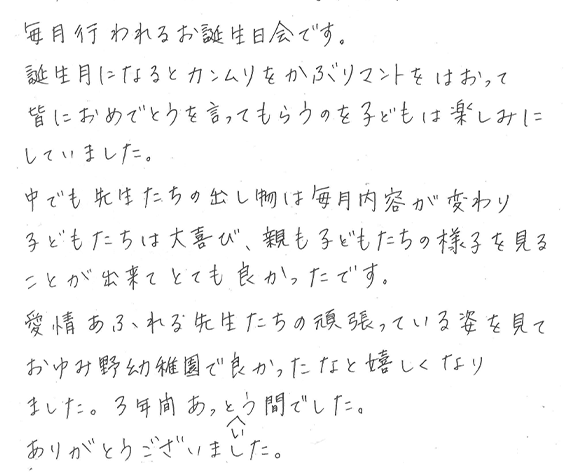 毎月行われるお誕生日会です。
誕生月になるとカンムリをかぶりマントをはおって
皆におめでとうを言ってもらうのを子どもは楽しみに
していました。
中でも先生たちの出し物は毎月内容が変わり
子どもたちは大喜び、親も子どもたちの様子を見る
ことが出来てとても良かったです。
愛情あふれる先生たちの頑張っている姿を見て
おゆみ野幼稚園で良かったなと嬉しくなり
ました。3年間あっとう間でした。
い
ありがとうございました。